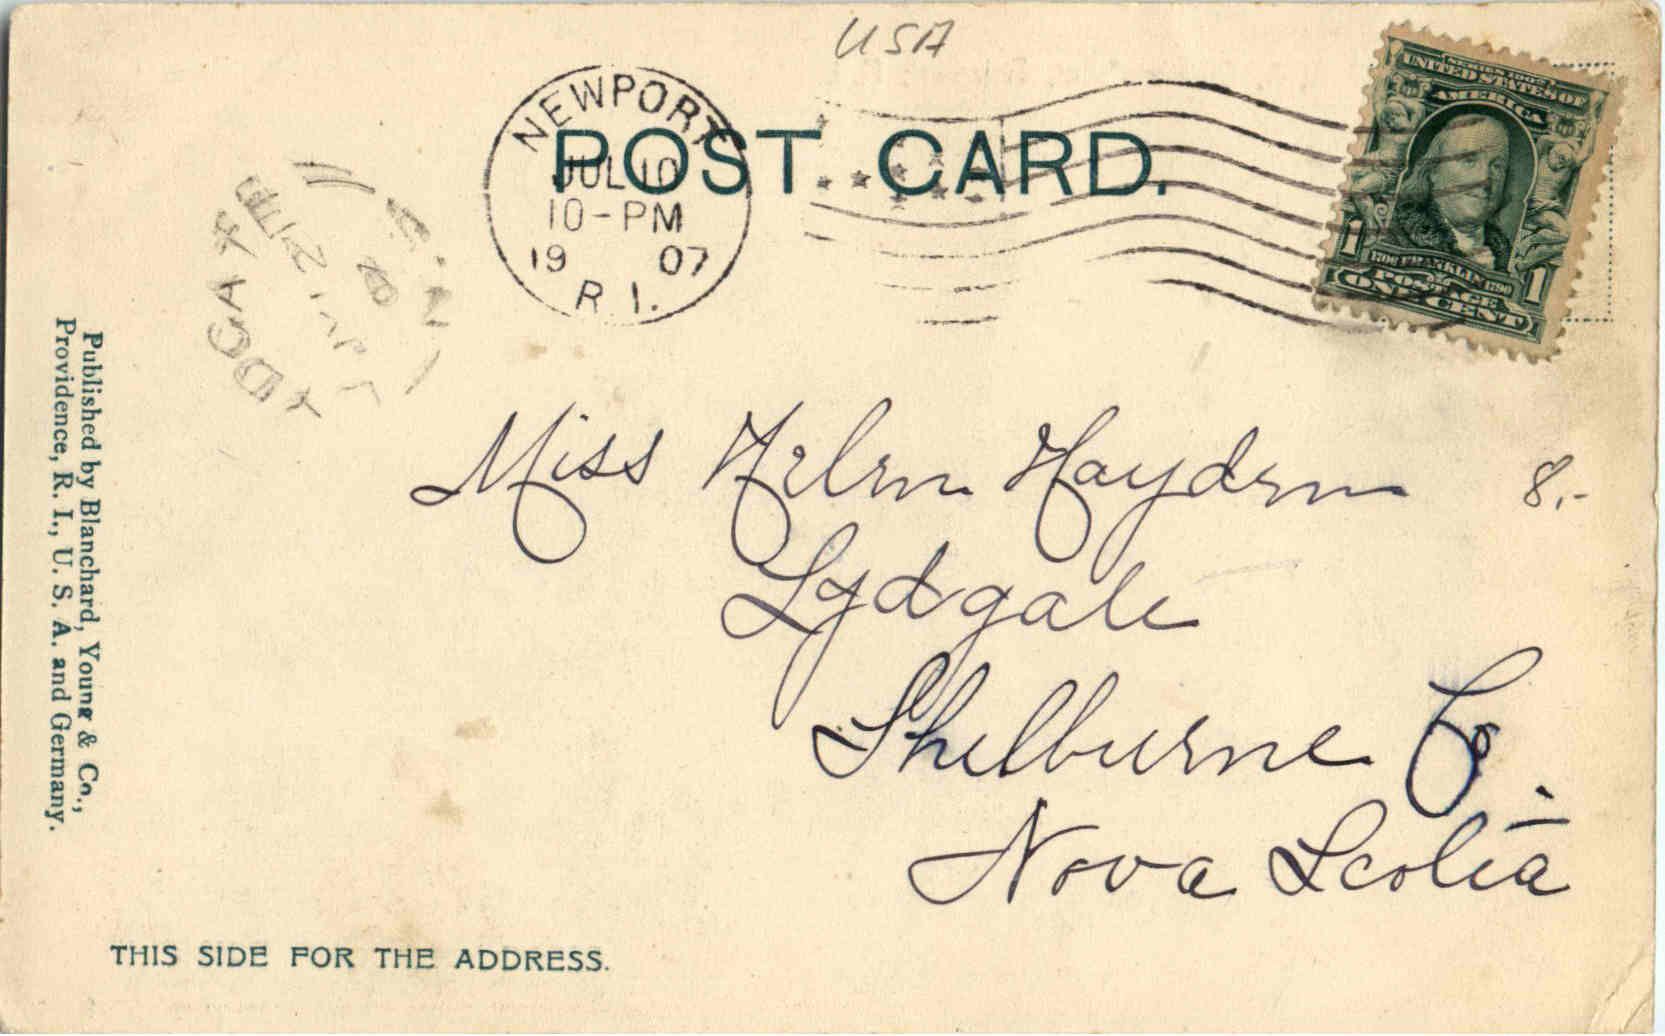 USA
NEWPORT
JUL 10
10-PM
19 07
R. I.
POST CARD.
SERIES 1902
UNITED STATES OF
AMERICA
1706 FRANKLIN 1790
1 POSTAGE 1
ONE CENT
Miss Helen Hayden
8.-
Lydgate
Shelburne Co.
Nova Scotia
Published by Blanchard, Young & Co.,
Providence, R. I., U. S. A. and Germany.
THIS SIDE FOR THE ADDRESS.